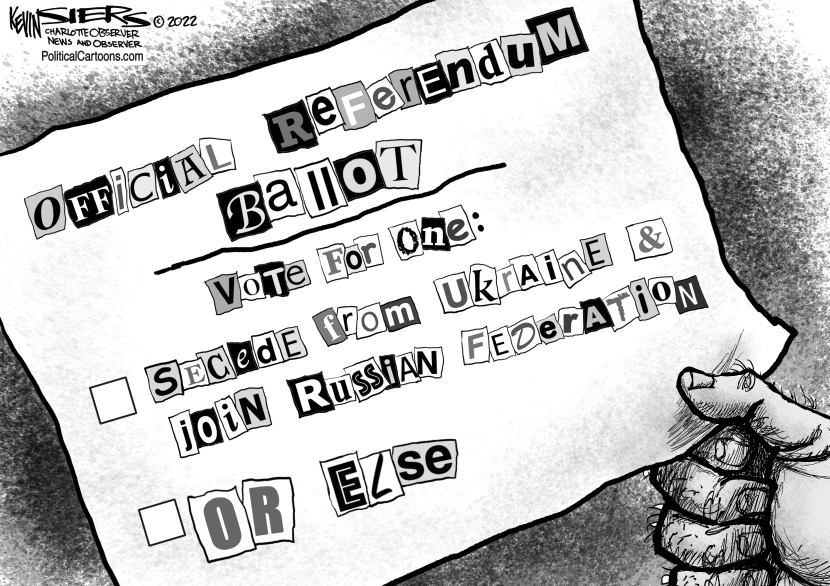 KEVIN SIERS © 2022
CHARLOTTE OBSERVER
NEWS AND OBSERVER
PoliticalCartoons.com
OFFiCiAL ReFerEnduM
BallOT
VoTe For One:
SECedE from UkrAinE &
joiN RuSSiAN FEDerATioN
OR ElSe